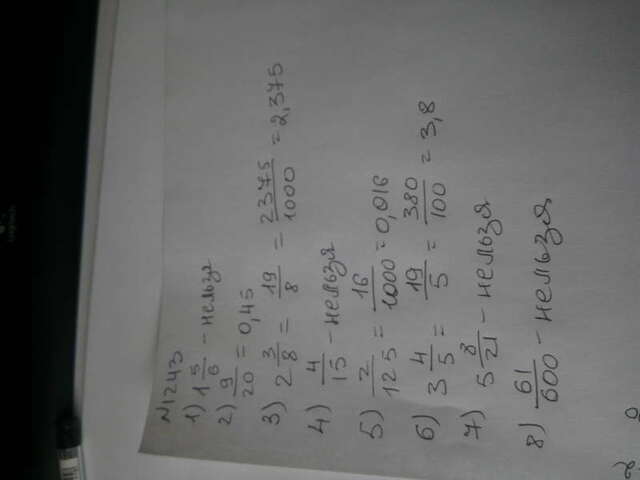 N1243
1) 1 5/6 - нельзя
2) 9/20 = 0,45
3) 2 3/8 = 19/8 = 2375/1000 = 2,375
4) 4/15 - нельзя
5) 2/125 = 16/1000 = 0,016
6) 3 4/5 = 19/5 = 380/100 = 3,8
7) 5 8/21 - нельзя
8) 61/600 - нельзя